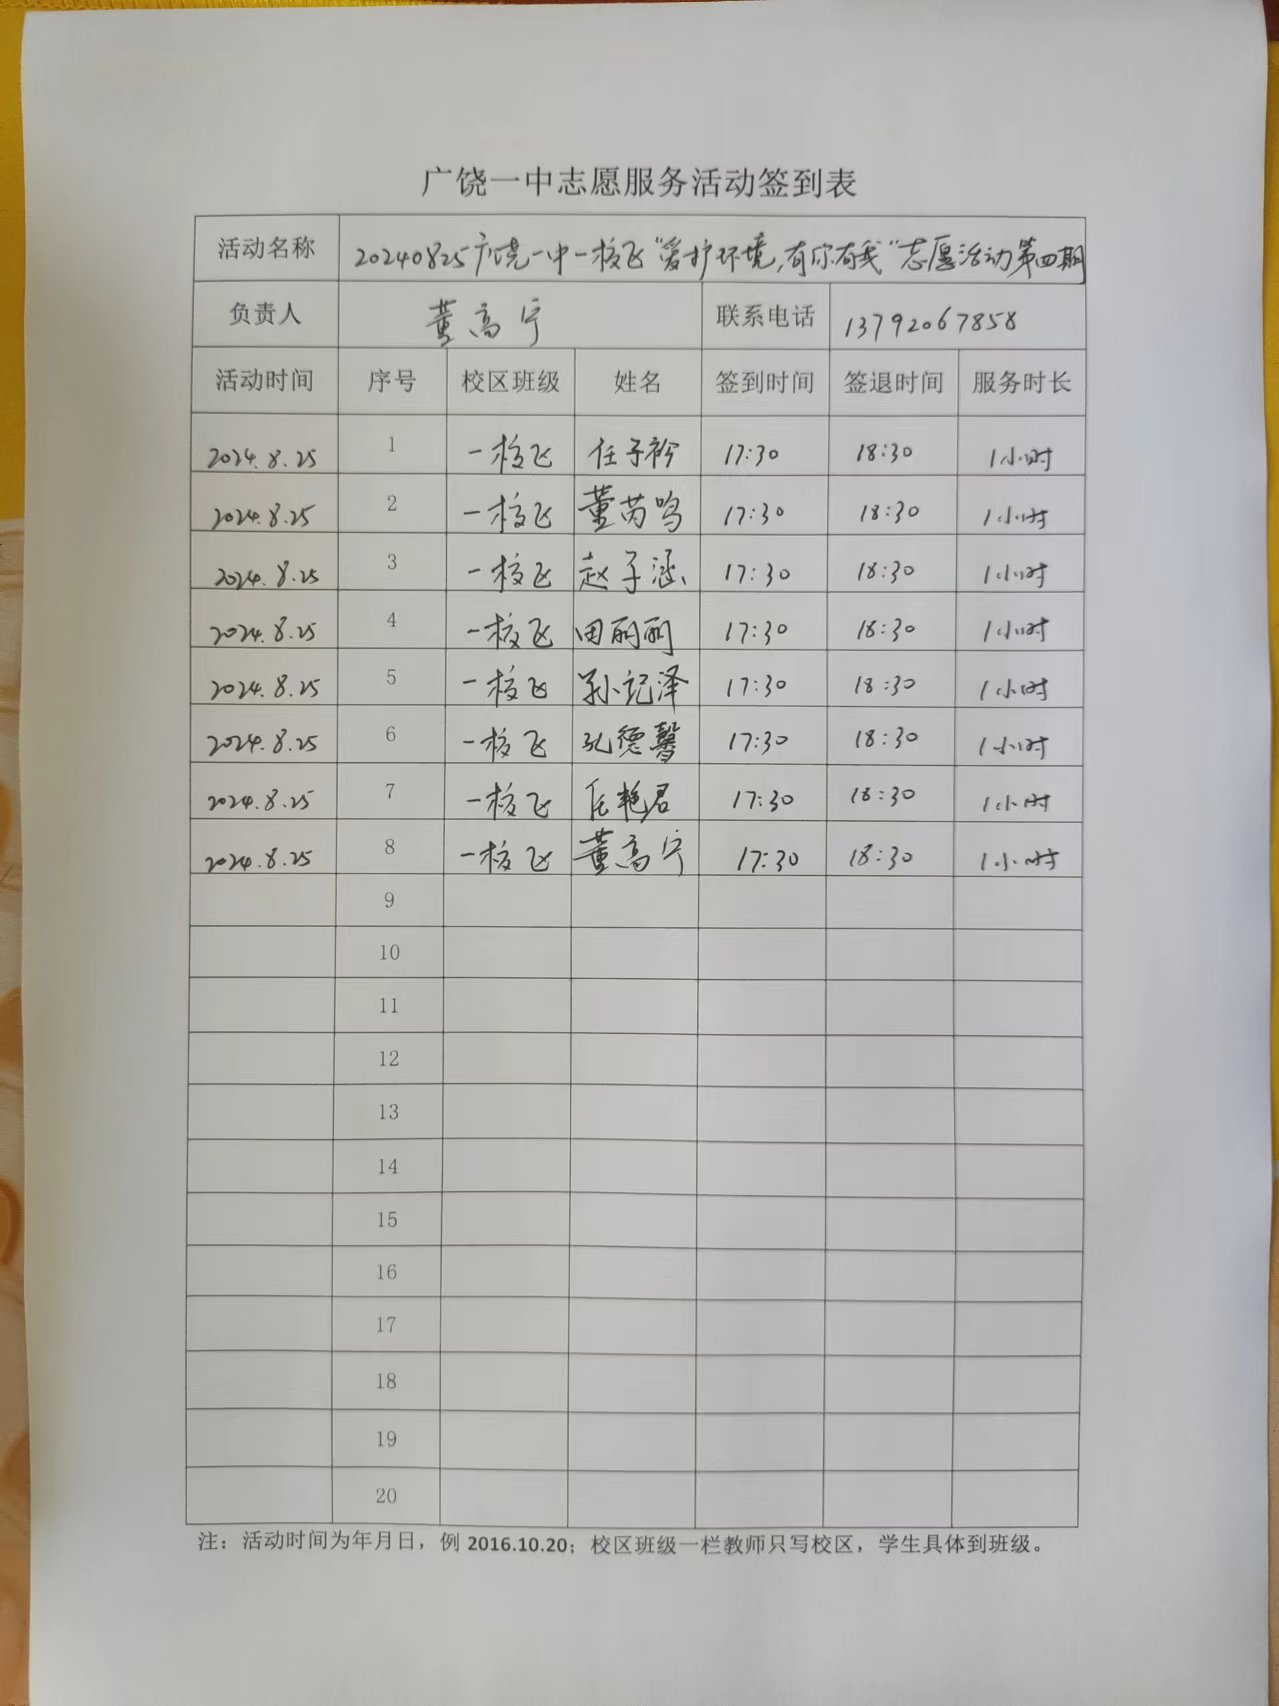 广饶一中志愿服务活动签到表
活动名称 20240825广饶一中一校飞“爱护环境,有你有我”志愿活动第四期
负责人 董高宁 联系电话 13792067858
活动时间 序号 校区班级 姓名 签到时间 签退时间 服务时长
2024.8.25 1 一校飞 任子衿 17:30 18:30 1小时
2024.8.25 2 一校飞 董芮鸣 17:30 18:30 1小时
2024.8.25 3 一校飞 赵子涵 17:30 18:30 1小时
2024.8.25 4 一校飞 田丽丽 17:30 18:30 1小时
2024.8.25 5 一校飞 孙记泽 17:30 18:30 1小时
2024.8.25 6 一校飞 孔德馨 17:30 18:30 1小时
2024.8.25 7 一校飞 任艳君 17:30 18:30 1小时
2024.8.25 8 一校飞 董高宁 17:30 18:30 1小时
9
10
11
12
13
14
15
16
17
18
19
20
注：活动时间为年月日，例 2016.10.20；校区班级一栏教师只写校区，学生具体到班级。